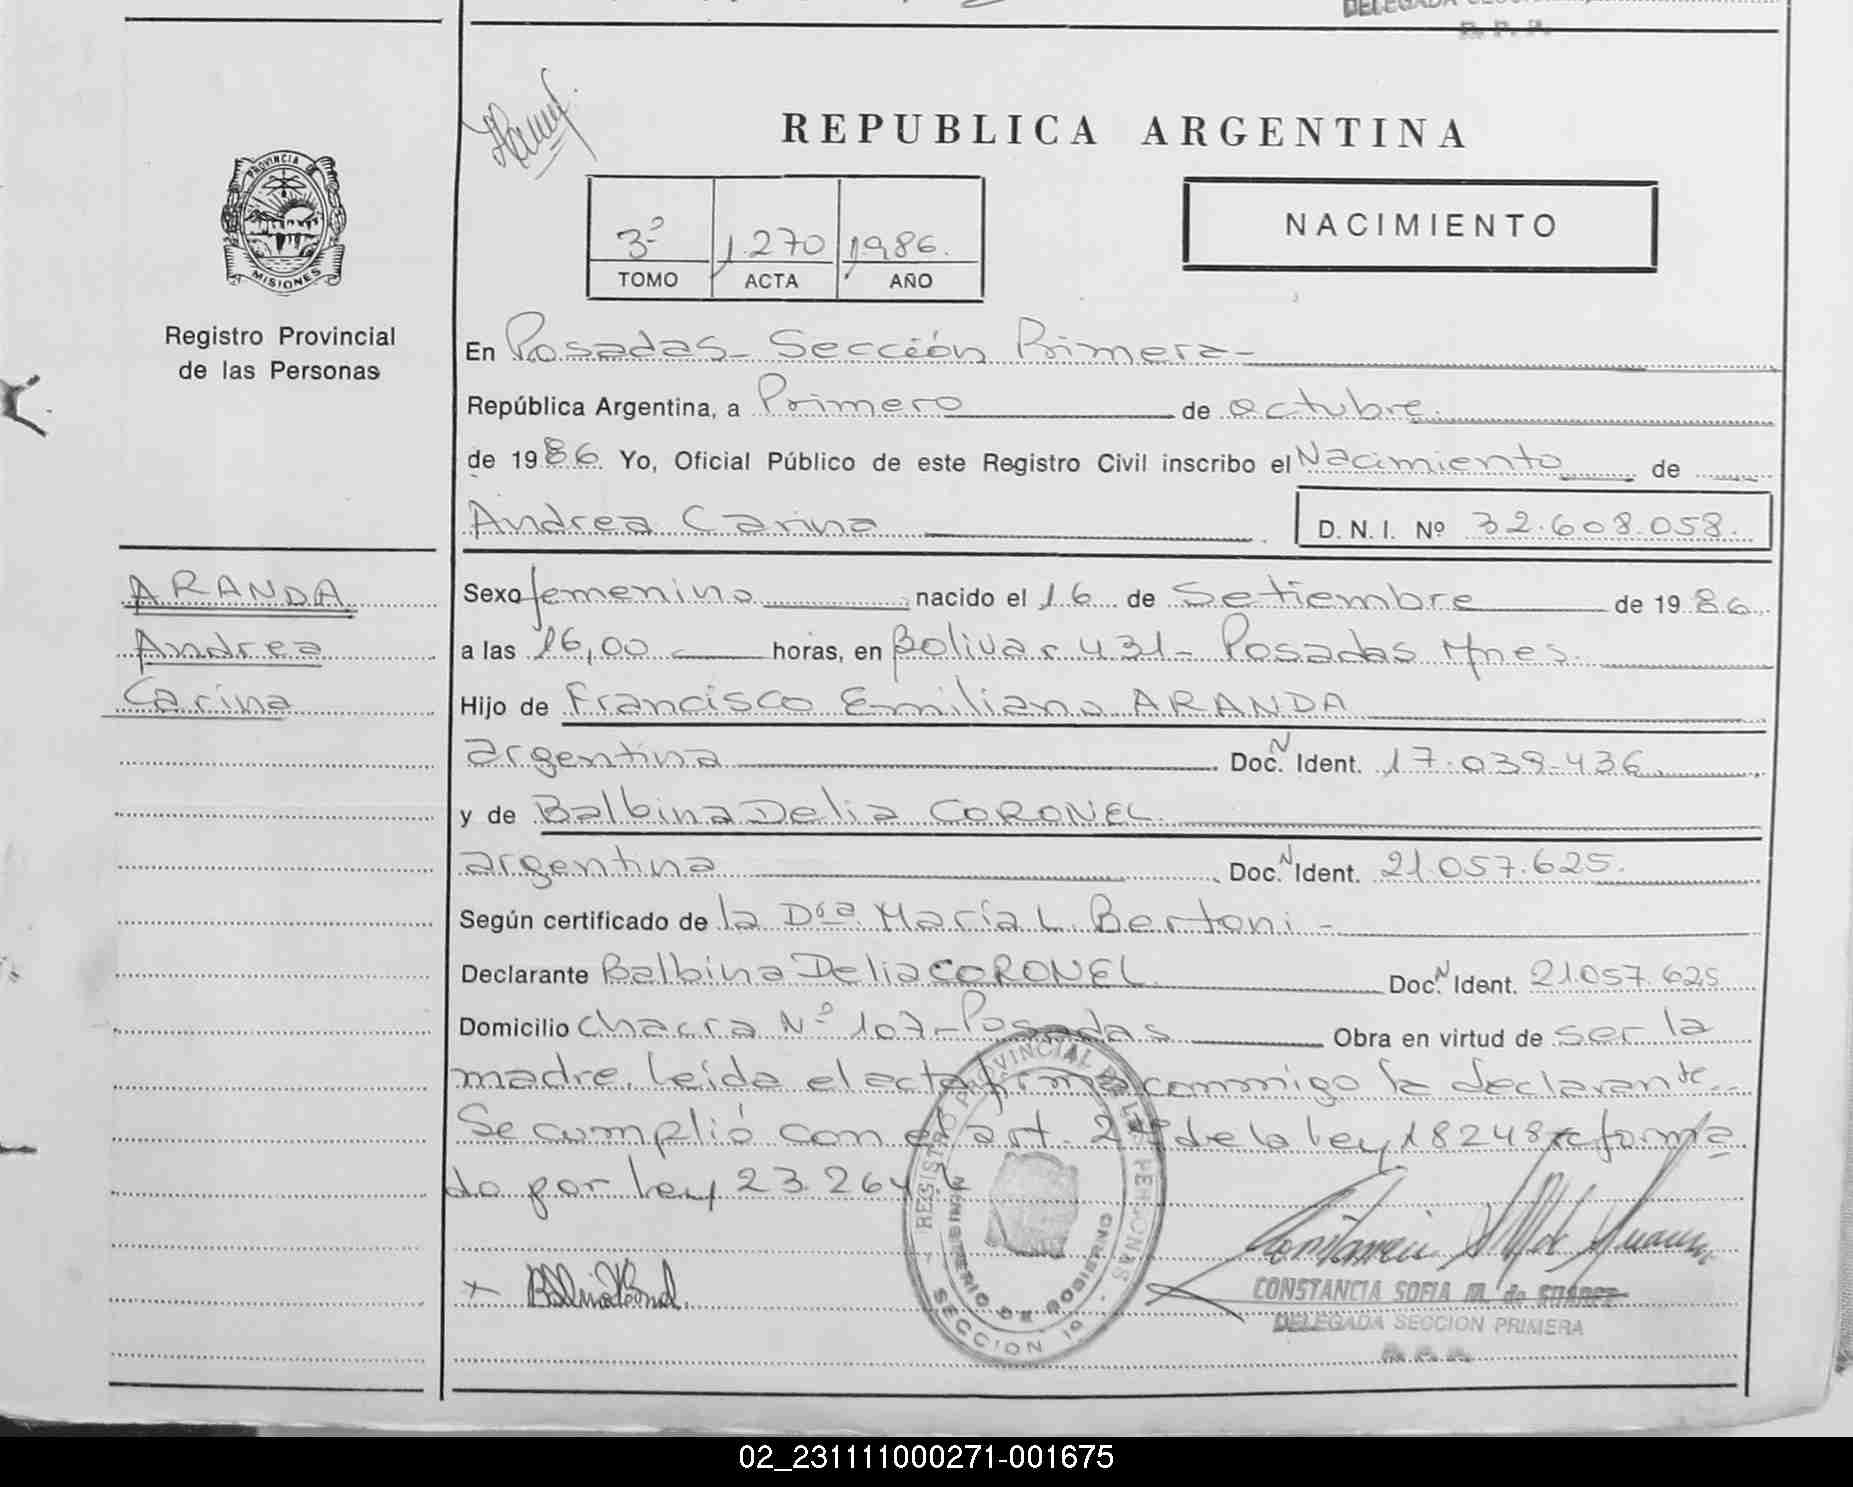 DELEGADA
R. P. P.
REPUBLICA ARGENTINA
PROVINCIA DE
MISIONES
NACIMIENTO
3º 1.270 1986.
TOMO ACTA AÑO
Registro Provincial
de las Personas
En Posadas - Sección Primera -
República Argentina, a Primero de octubre.
de 1986. Yo, Oficial Público de este Registro Civil inscribo el Nacimiento de
Andrea Carina D. N. I. Nº 32.608.058.
ARANDA
Andrea
Carina
Sexo femenino nacido el 16 de Setiembre de 1986.
a las 16,00 horas, en Bolivar 431 - Posadas Mnes.
Hijo de Francisco Emiliano ARANDA
argentina Doc. N Ident. 17.039.436
y de Balbina Delia CORONEL
argentina Doc. N Ident. 21.057.625.
Según certificado de la Dra. María L. Bertoni -
Declarante Balbina Delia CORONEL Doc. N Ident. 21.057.625
Domicilio Chacra Nº 107 - Posadas Obra en virtud de ser la
madre. leída el acta firma conmigo la declarante.
Se cumplió con el art. 2º de la ley 18248 reforma
do por ley 23.264
REGISTRO PROVINCIAL DE LAS PERSONAS
MINISTERIO DE GOBIERNO
SECCION 1º
CONSTANCIA SOFIA M. de SUAREZ
DELEGADA SECCION PRIMERA
R. P. P.
02_231111000271-001675